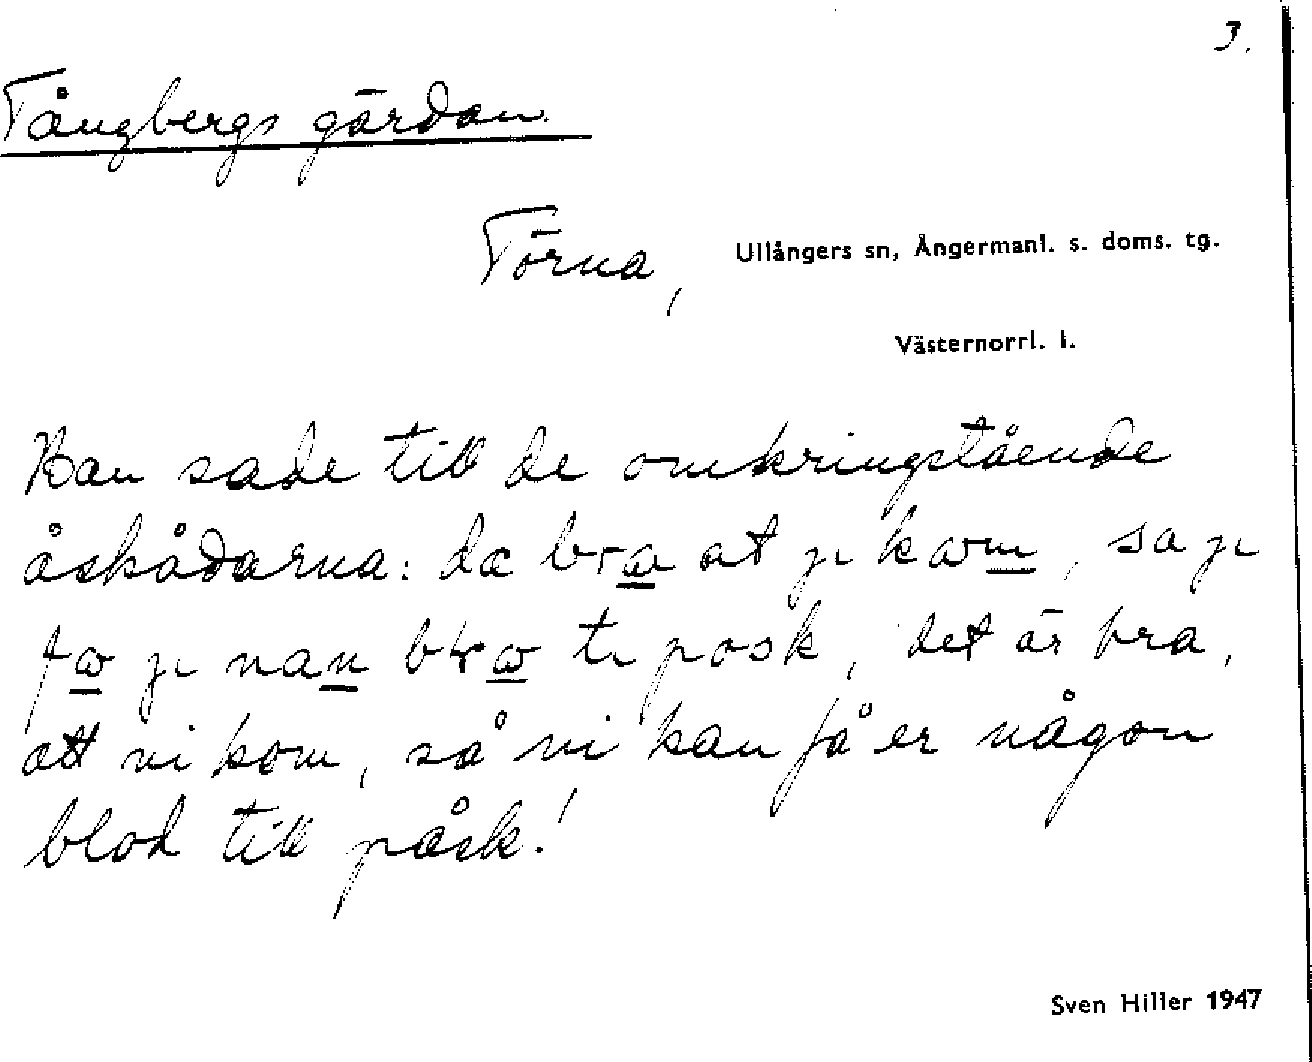 3.
Tångbergs gärdan.
Törna, Ullångers sn, Ångermanl. s. doms. tg.
Västernorrl. l.
Han sade till de omkringstående
åskådarna: dæ at kom, sa
posk, det är bra,
att ni kom, så ni kan få er någon
blod till påsk!
Sven Hiller 1947